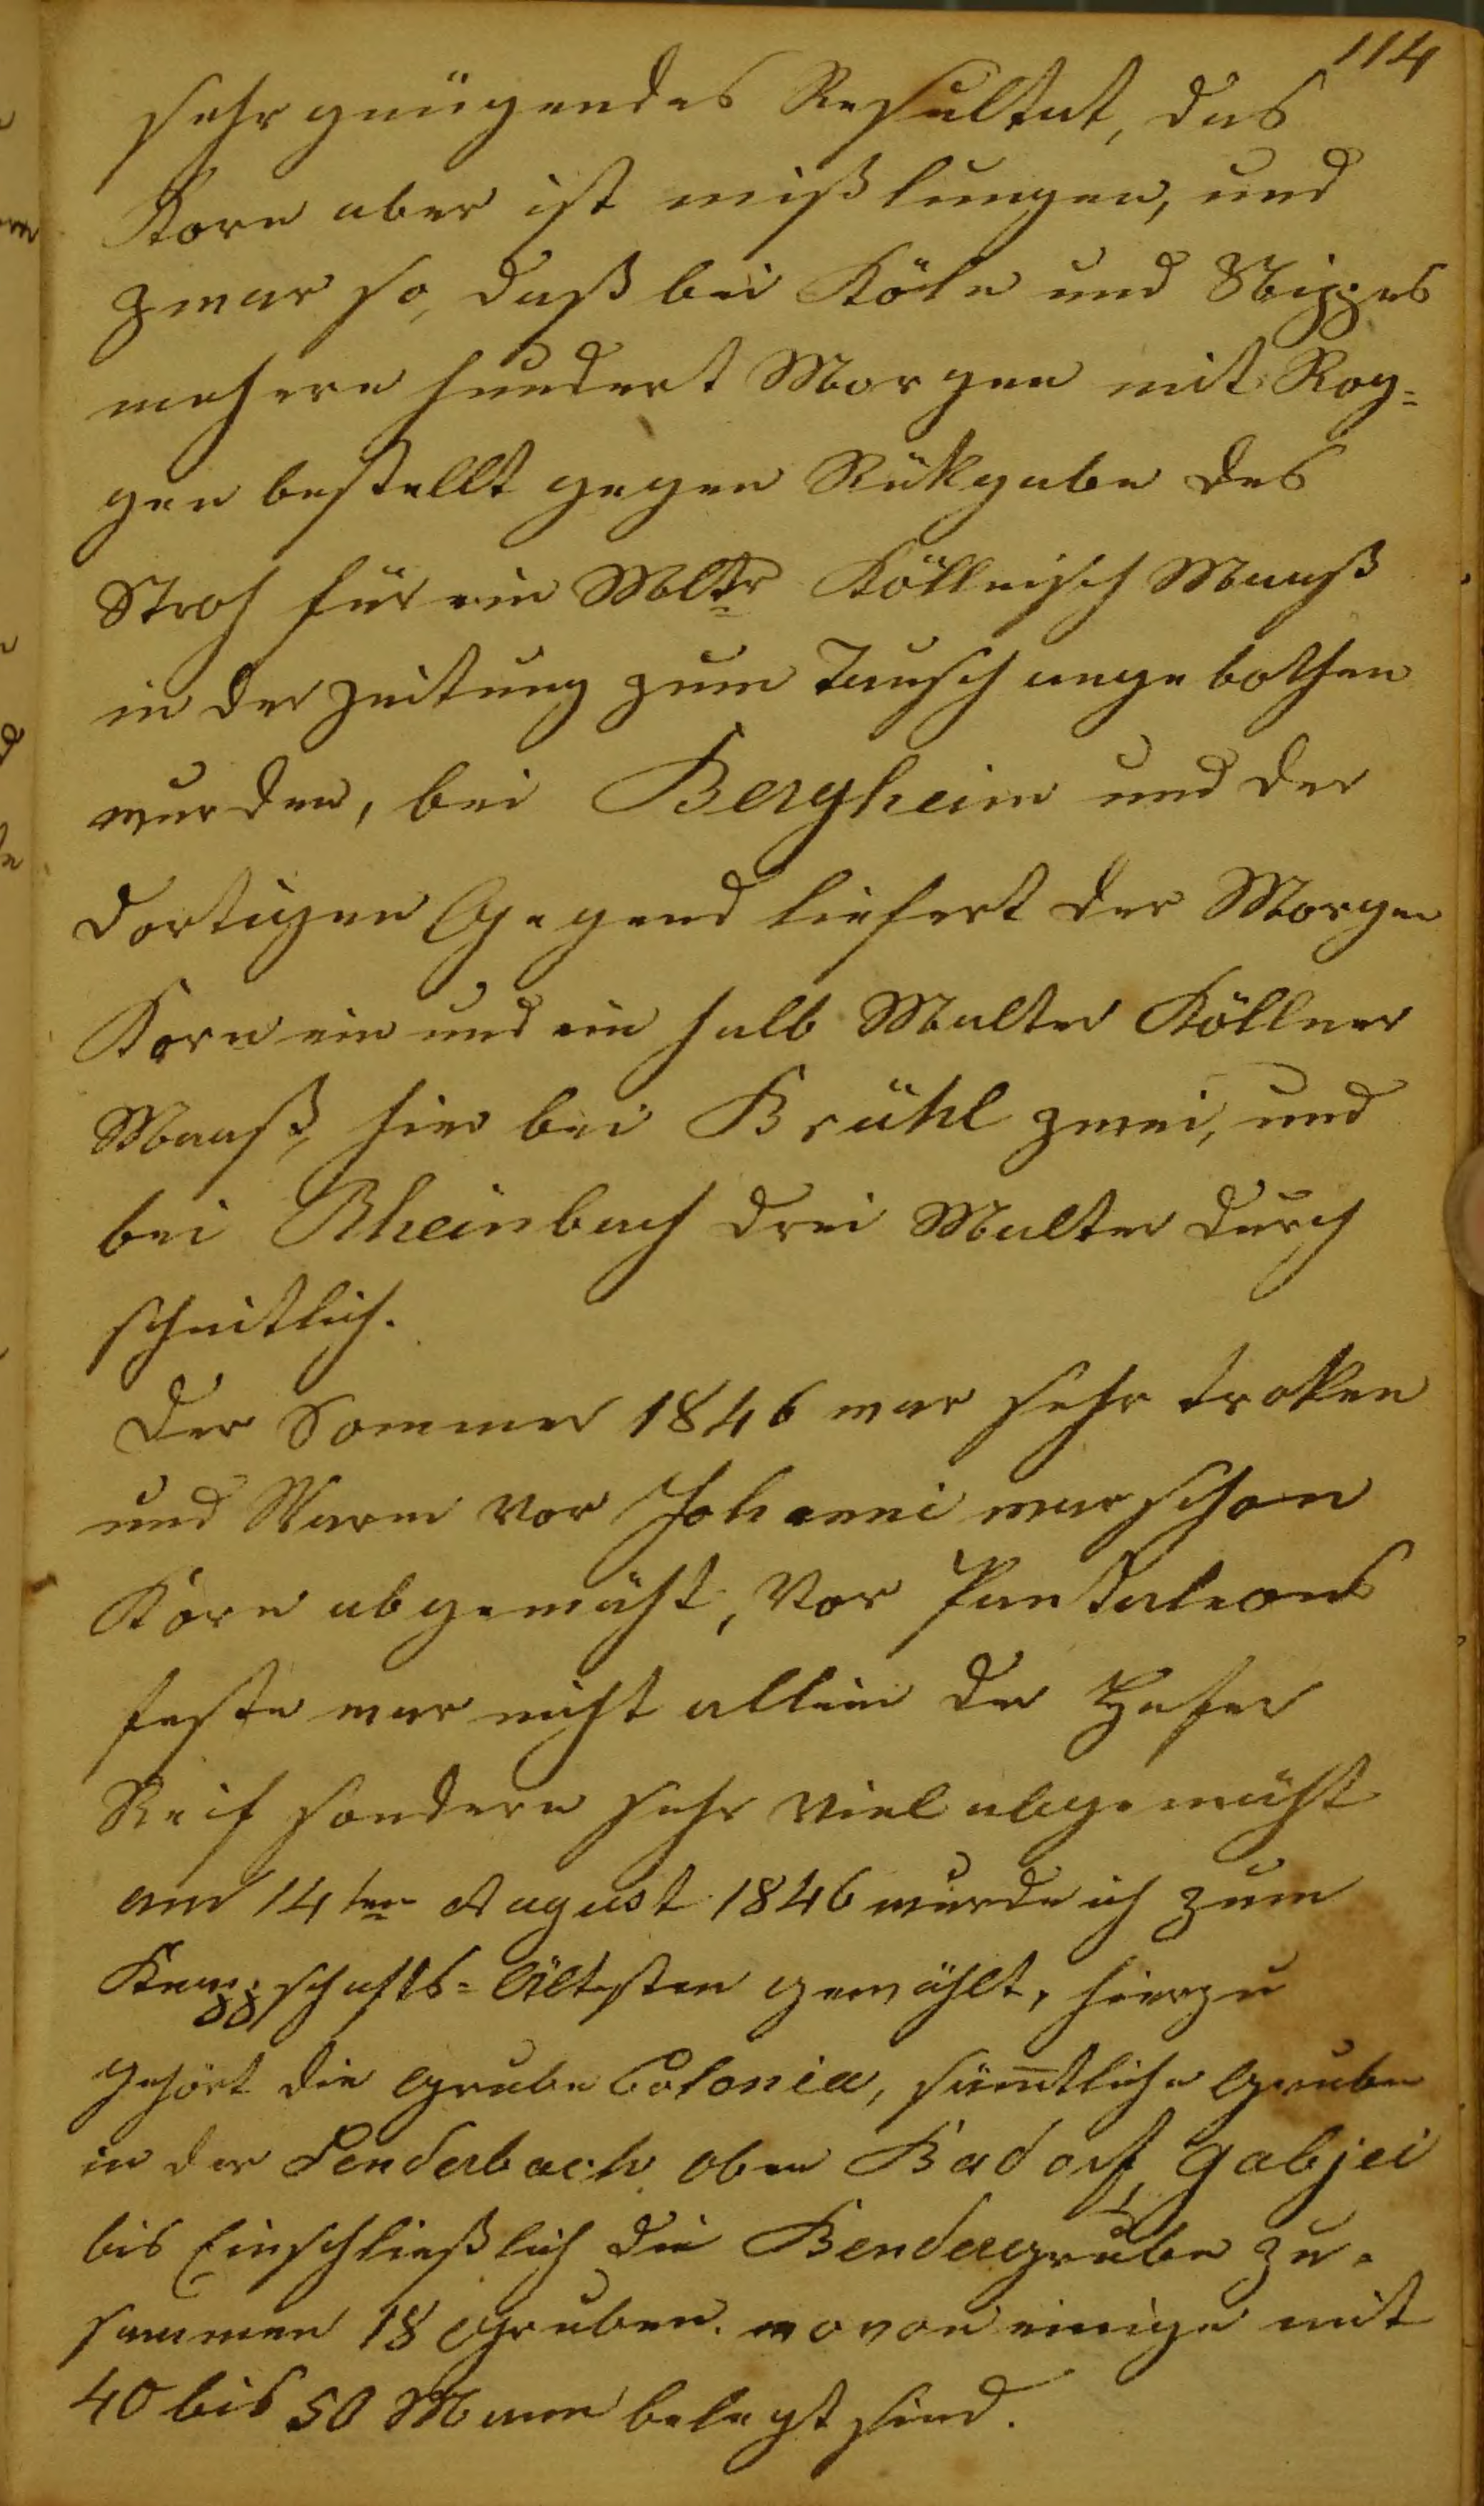 114
sehr gnügendes Resultat, das
Korn aber ist mißlungen, und
zwar so, daß bei Köln und Nippes
mehere hundert Morgen mit Rog-
gen bestellt gegen Rükgabe des
Stroh für ein Mltr Köllnisch Maaß
in der Zeitung zum Tausch angebothen
wurden, bei Bergheim und der
dortigen Gegend liefert der Morgen
Korn ein und ein halb Malter Köllner
Maaß, hier bei Brühl zwei, und
bei Rheinbach drei Malter durch
schnitlich.
Der Sommer 1846 war sehr troken
und Warm vor Johanni war schon
Korn abgemäht, Vor Pantaleons
feste war nicht allein der Hafer
Reif sondern sehr viel abgemäht
am 14ten August 1846 wurde ich zum
Knappschafts-Ältesten gewählt, hierzu
gehört die Grube Colonia, sämtliche Gruben
in der Lenderbach oben Badorf, Gabjei
bis Einschließlich die Bendergrube zu-
sammen 18 Gruben. wovon einige mit
40 bis 50 Mann belegt sind.